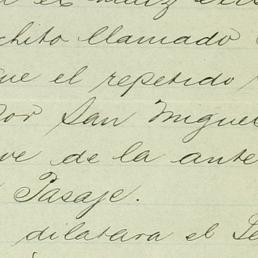 chito llamado
que el repetido
por San Miguel
ve de la ante
Pasaje.
dilatara el Se